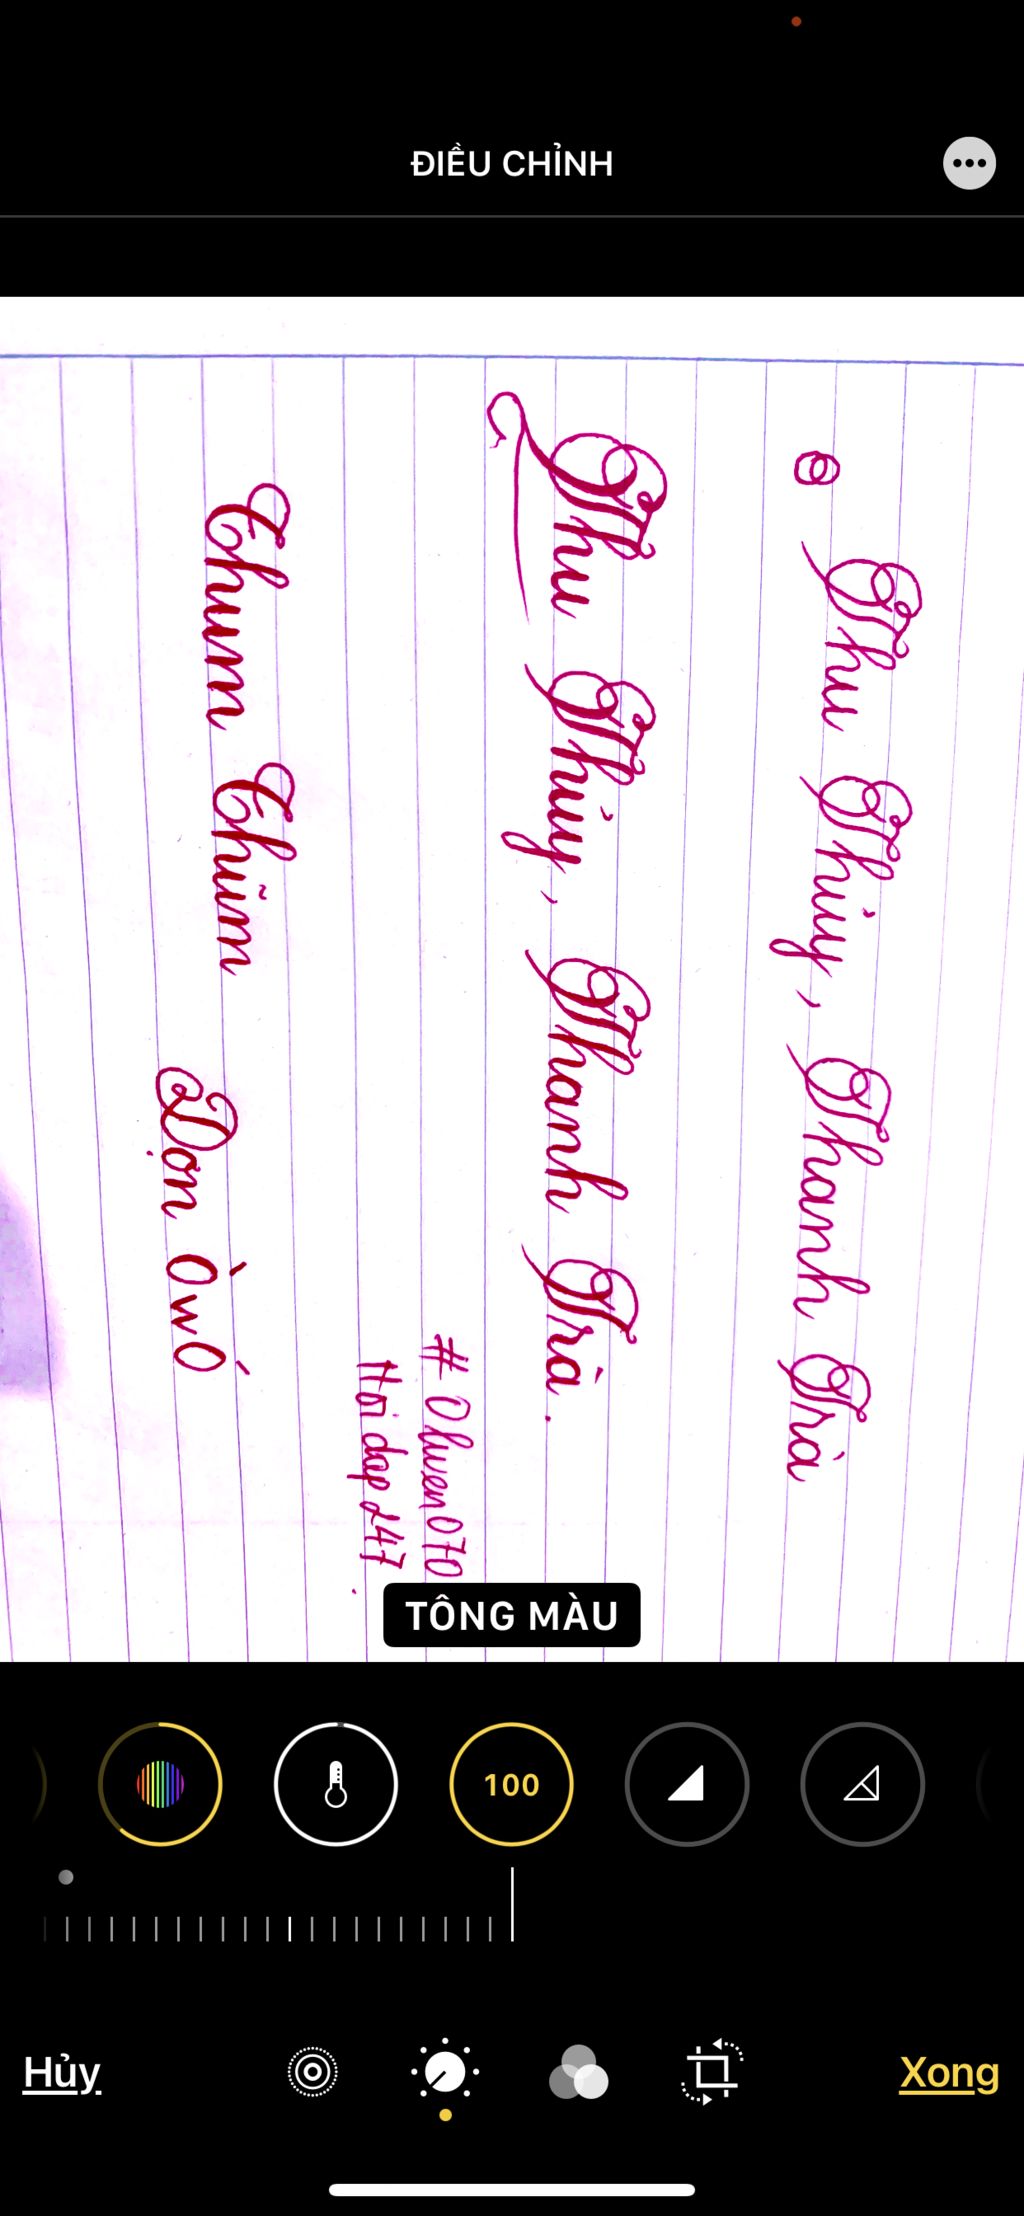 ĐIỀU CHỈNH
Thu Thủy, Thanh Trà
Thu Thủy, Thanh Trà.
# Ohuen070
Hỏi đáp 247.
Chum Chũm
Dọn ÒwÓ
TÔNG MÀU
100
Hủy
Xong